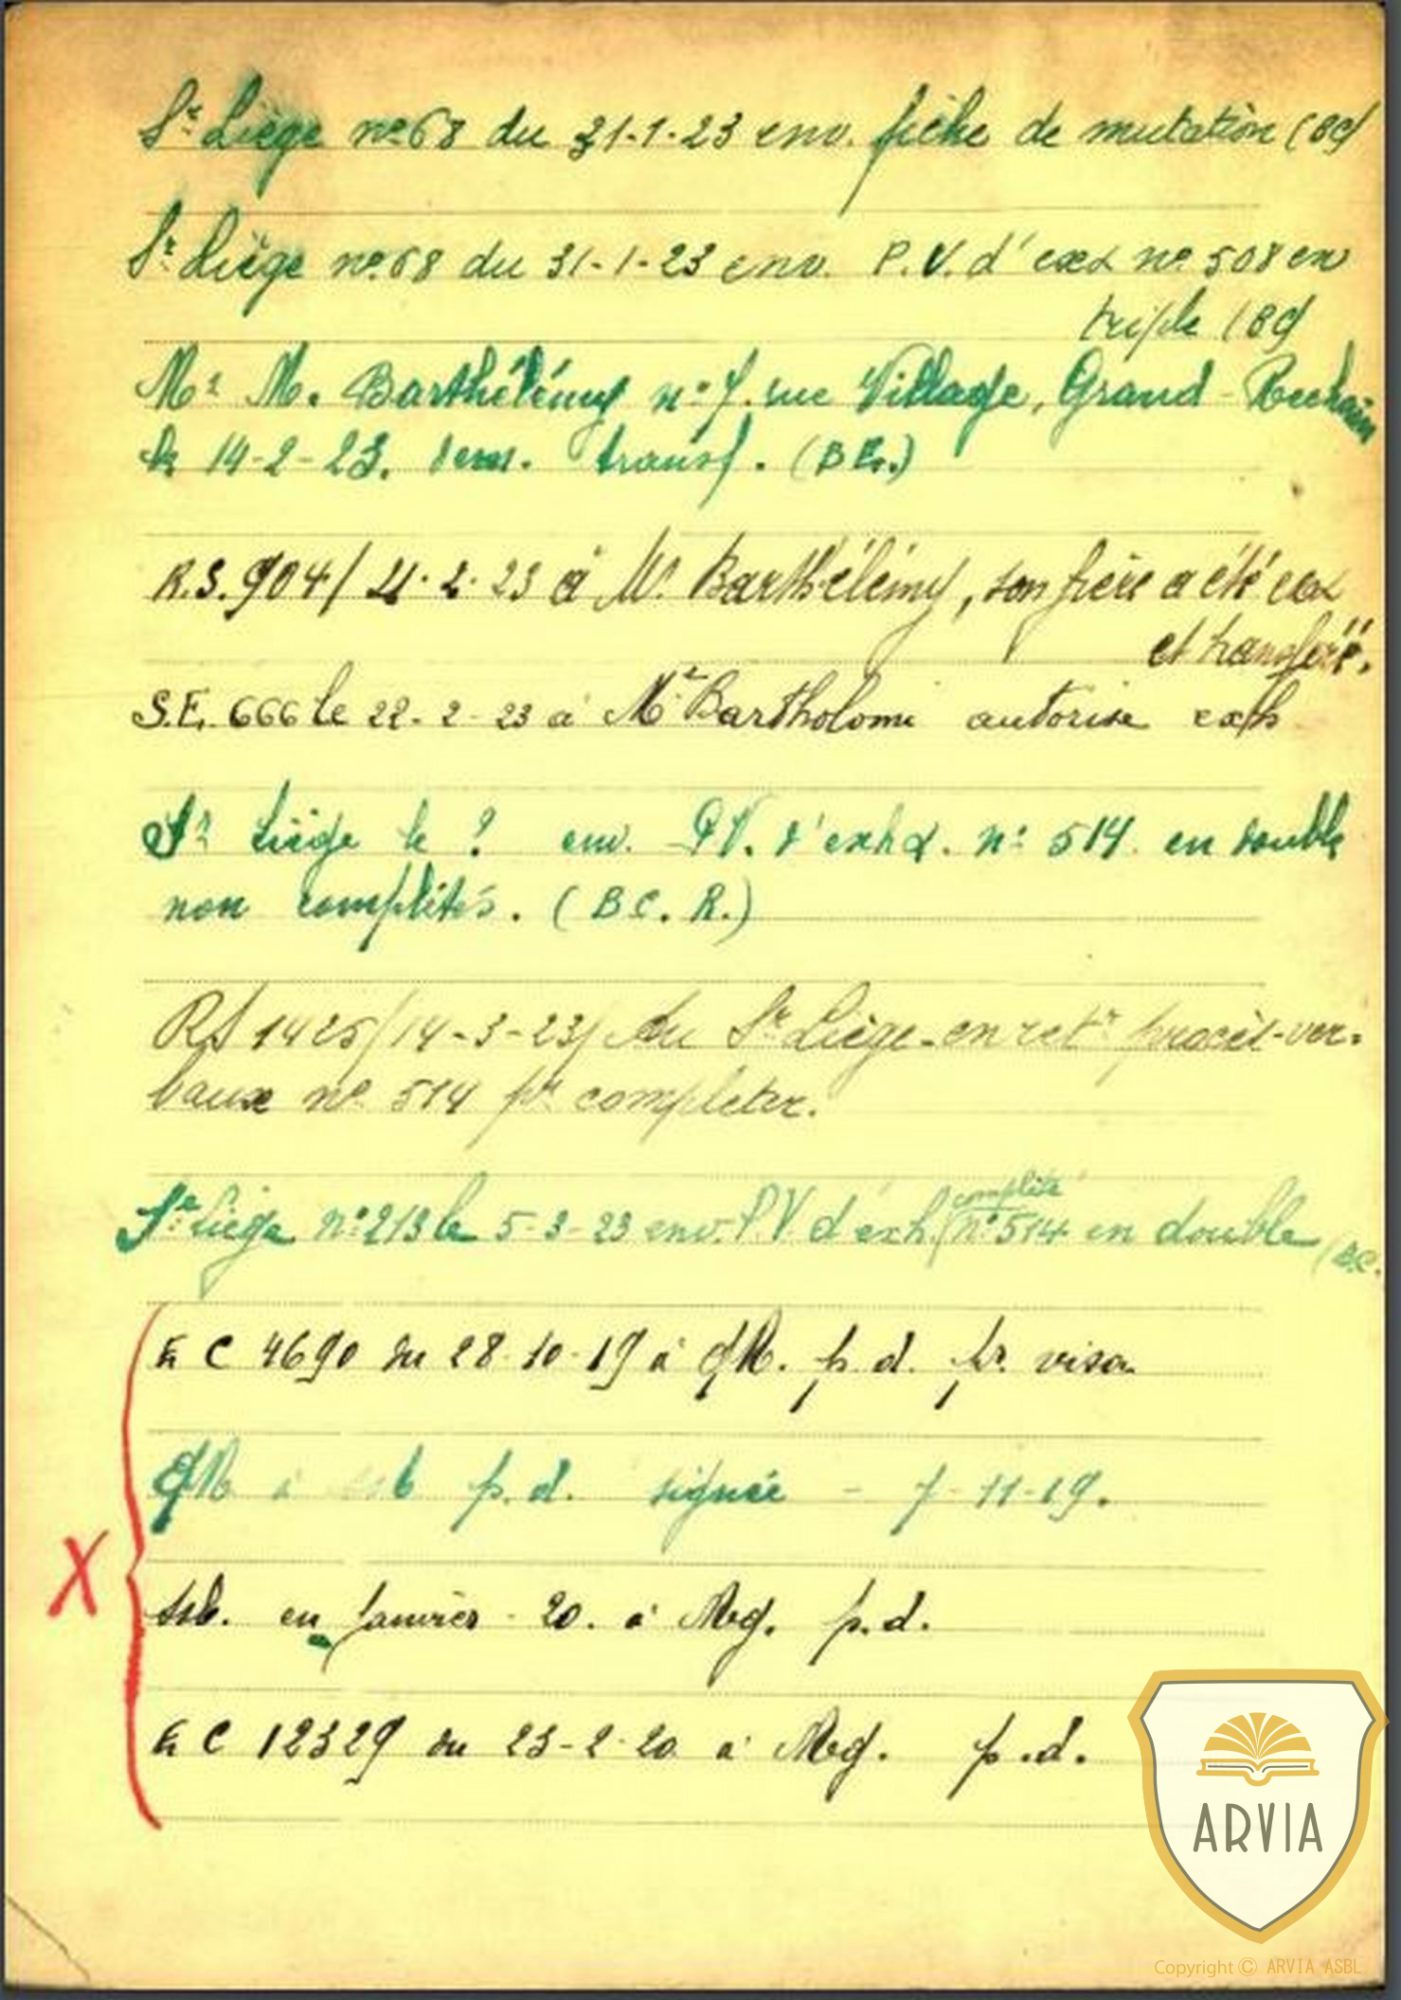 Sr Liège no 68 du 31-1-23 env. fiche de mutation (BC)
Sr Liège no 68 du 31-1-23 env. P.V. d'exh no 508 en
triple (BC)
Mr M. Barthélémy no 7. rue Village, Grand-Rechain
le 14-2-23. dem. transf. (B Et.)
R.S. 904/ 21-2-23 à Mr. Barthélémy, son frère a été exh
et transféré.
S.E. 666 le 22-2-23 à Mr Bartholomé autorise exh
Sr Liège le ? env. PV. d'exh. no 514 en double
non complétés. (B C. R.)
RS 1425/14-3-23/ Au Sr Liège-en retr procès-ver-
baux no 514 pr completer.
Sr Liège no 213 le 5-3-23 env. P.V d'exh. no 514 en double (B.C.
complété
E C 4690 du 28-10-19 à p.d. pr. visa
à p.d. signée - 7-11-19.
en Janvier-20. à p.d.
E C 12329 du 23-2-20 à p.d.
X
ARVIA
Copyright © ARVIA ASBL